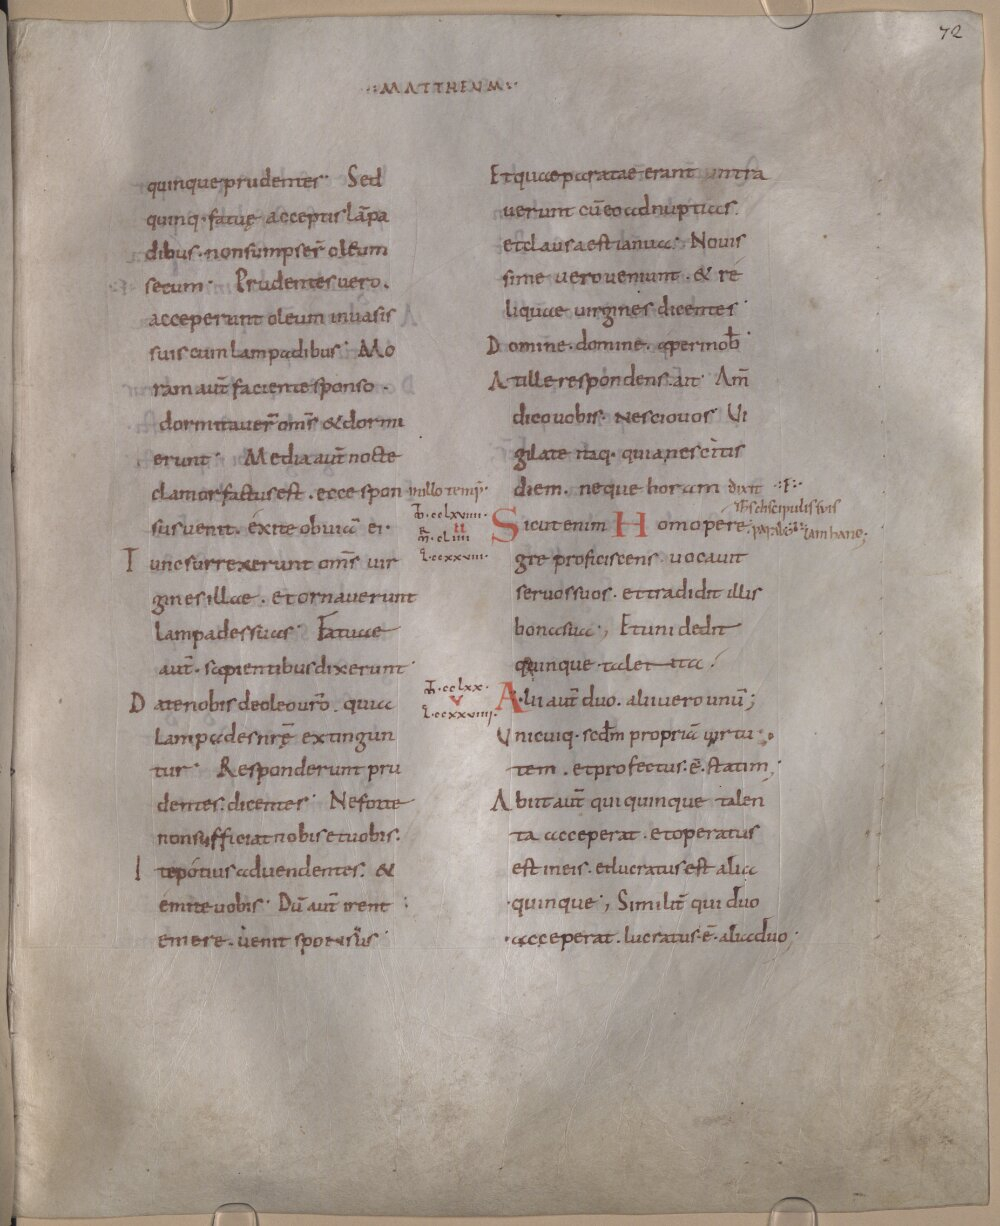 72
·:MATTHEUM:·
quinque prudentes· Sed
quinq· fatuę acceptis lāpa
dibus· non sumpser̄ oleum
secum· Prudentes vero·
acceperunt oleum in vasis
suis cum lampadibus· Mo
ram aut̄ faciente sponso·
dormitaver̄ om̄s & dormi
erunt· Media aut̄ nocte
clamor factus est· ecce spon
sus venit· exite obviā ei·
Tunc surrexerunt om̄s vir
gines illae· et ornaverunt
lampades suas· Fatuae
aut̄· sapientibus dixerunt·
Date nobis de oleo vr̄o· quia
lampades nr̄ę extingun
tur· Responderunt pru
dentes· dicentes· Ne forte
non sufficiat nobis et vobis·
Ite potius ad vendentes· &
emite vobis· Dū aut̄ irent
emere· venit sponsus·
Et quae paratae erant intra
verunt cū eo ad nuptias·
et clausa est ianua· Novis
sime vero veniunt· & re
liquae virgines dicentes·
Domine· domine· aperi nob̄·
At ille respondens ait· Am̄
dico vobis· Nescio vos· Vi
gilate itaq· quia nescitis
diem· neque horam
in illo temp̄·
dixit
ih̄s discipulis suis
parabolā hanc;
Sicut enim Homo pere
gre proficiscens· vocavit
servos suos· et tradidit illis
bona sua·, Et uni dedit
quinque talenta·
Alii aut̄ duo· alii vero unū;
Unicuiq· scdm̄ propriā virtu
tem· et profectus· ē· statim;
Abiit aut̄ qui quinque talen
ta acceperat· et operatus
est in eis· et lucratus est alia
quinque·, Similit̄ qui duo
acceperat· lucratus· ē· alia duo;
·cclxviiii·
II
·cliiii
·ccxxviii·
·cclxx·
V
·ccxxviiii·